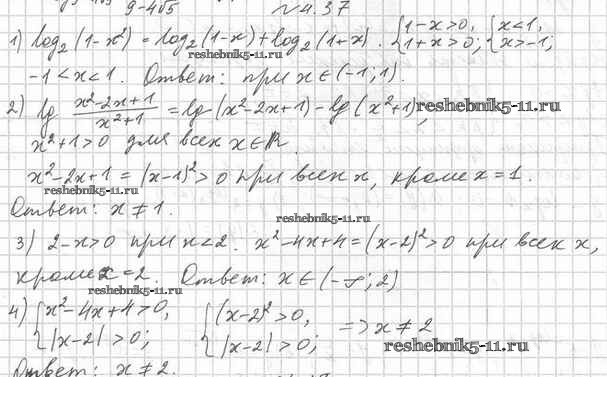 9-4√5 N4.37
1) log₂(1-x²) = log₂(1-x)+log₂(1+x). {1-x>0, {x<1,
reshebnik5-11.ru {1+x>0; {x>-1;
-1<x<1. Ответ: при x∈(-1;1).
2) lg (x²-2x+1)/(x²+1) = lg(x²-2x+1)-lg(x²+1), reshebnik5-11.ru
x²+1>0 для всех x∈R.
x²-2x+1 = (x-1)²>0 при всех x, кроме x=1.
reshebnik5-11.ru
Ответ: x≠1. reshebnik5-11.ru
3) 2-x>0 при x<2. x²-4x+4=(x-2)²>0 при всех x,
кроме x=2. Ответ: x∈(-∞;2)
reshebnik5-11.ru
4) {x²-4x+4>0, {(x-2)²>0, => x≠2
{|x-2|>0; {|x-2|>0; reshebnik5-11.ru
Ответ: x≠2.